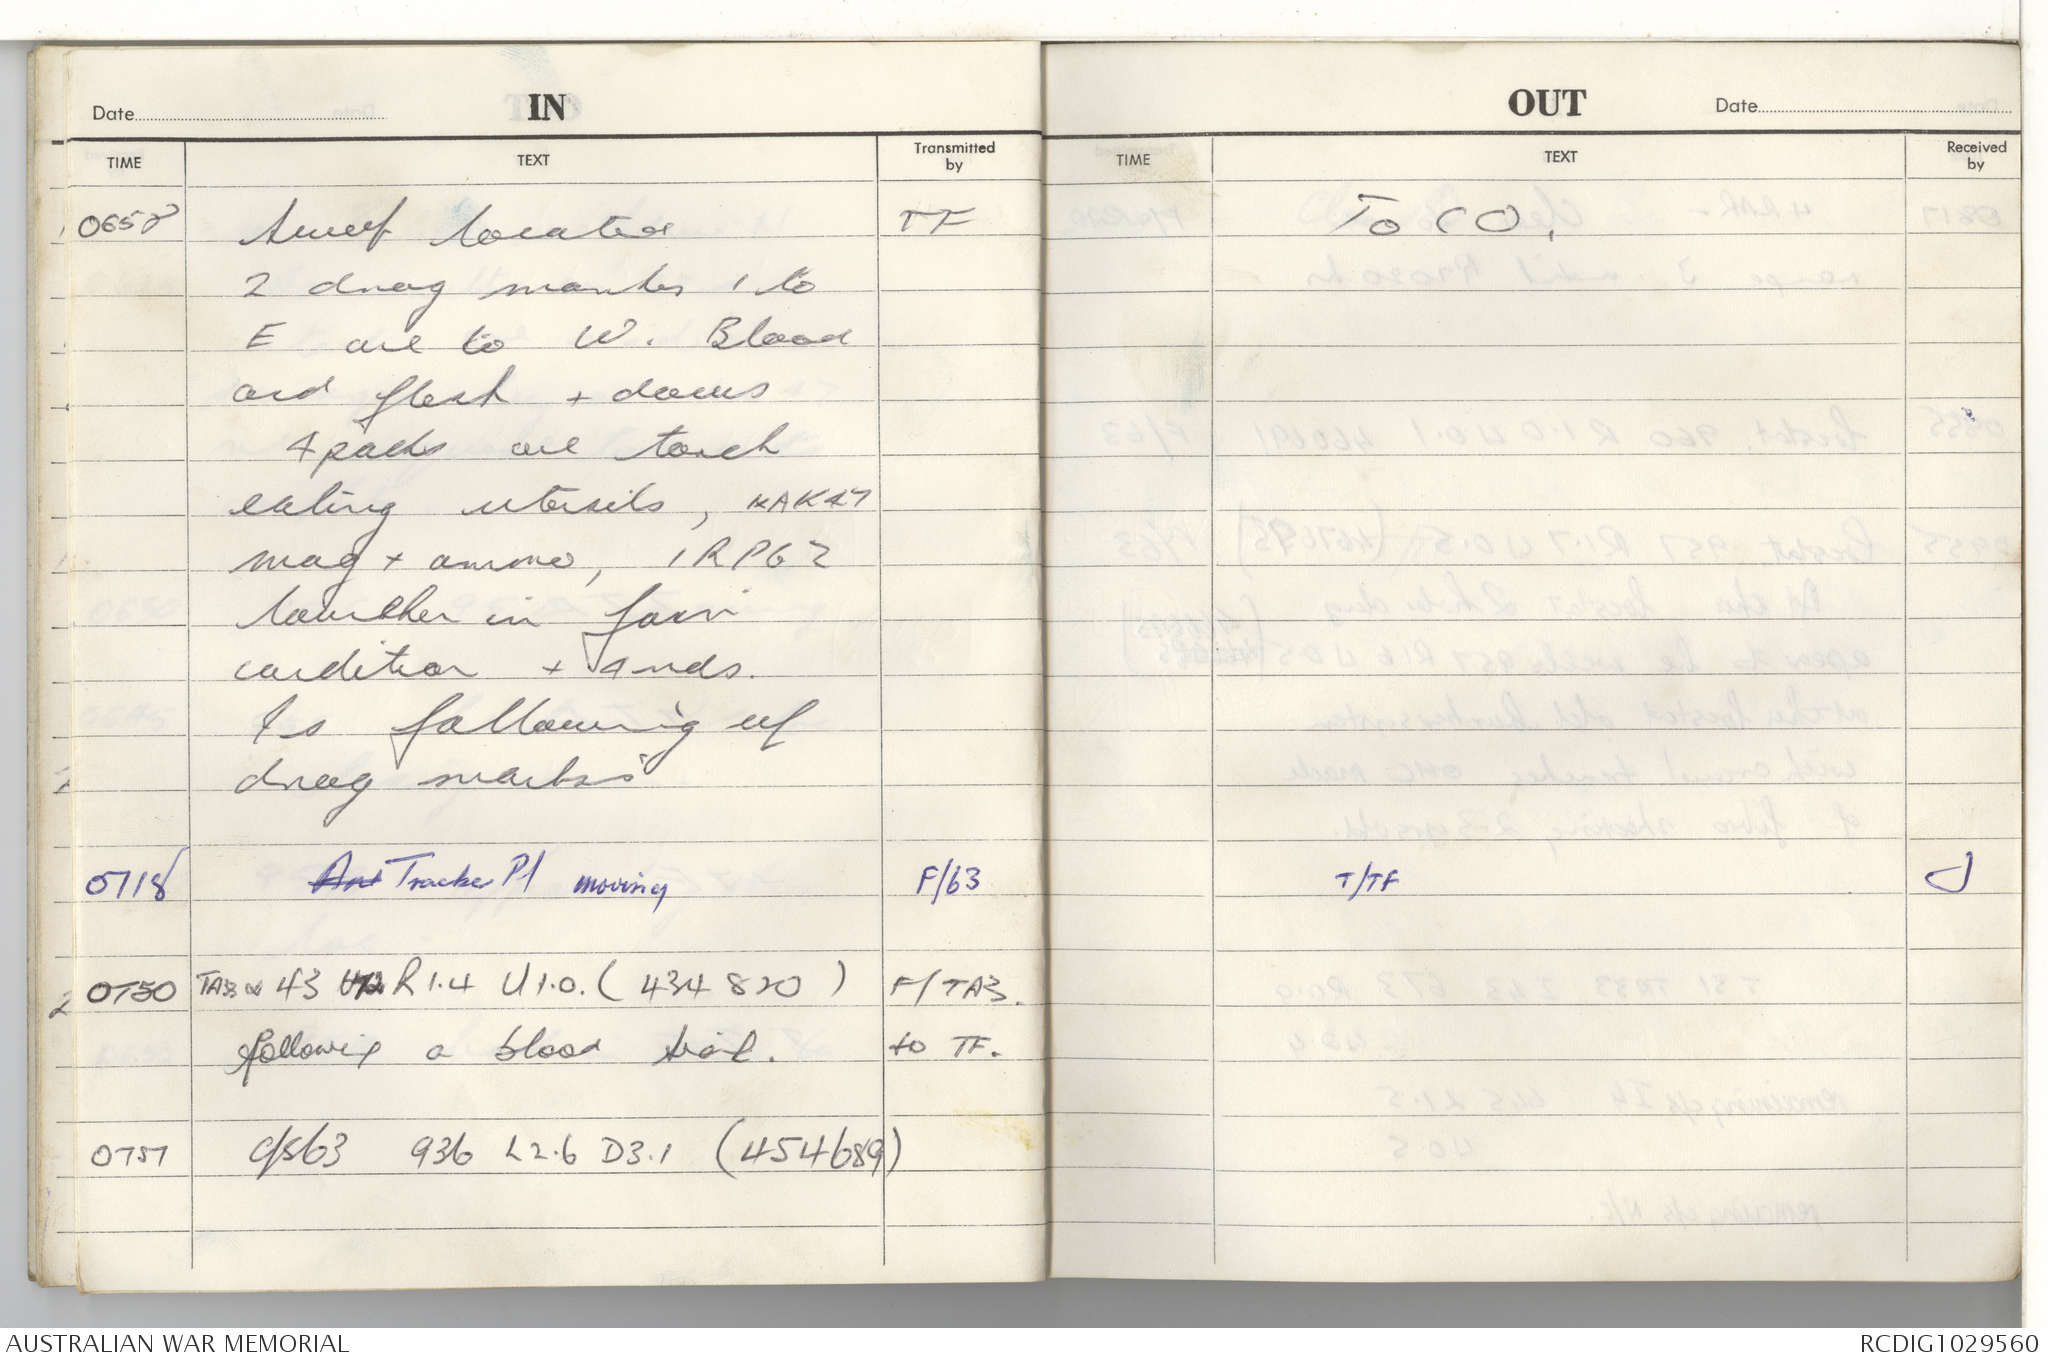 Date IN
TIME TEXT Transmitted by
0658 Sweep located TF
2 drag marks 1 to
E one to W. Blood
and flesh +
4 packs one torch
eating utensils, AK47
mag + ammo, 1 RPG 2
launcher in fair
condition + 4 rds.
Is following up
drag marks
0718 Ant Tracker Pl moving F/63
0750 43 R1.4 U1.0. (434 820) F/TA3.
following a blood trail. to TF.
0757 c/s63 936 L2.6 D3.1 (454689)
OUT Date
TIME TEXT Received by
To CO.
T/TF
AUSTRALIAN WAR MEMORIAL
RCDIG1029560